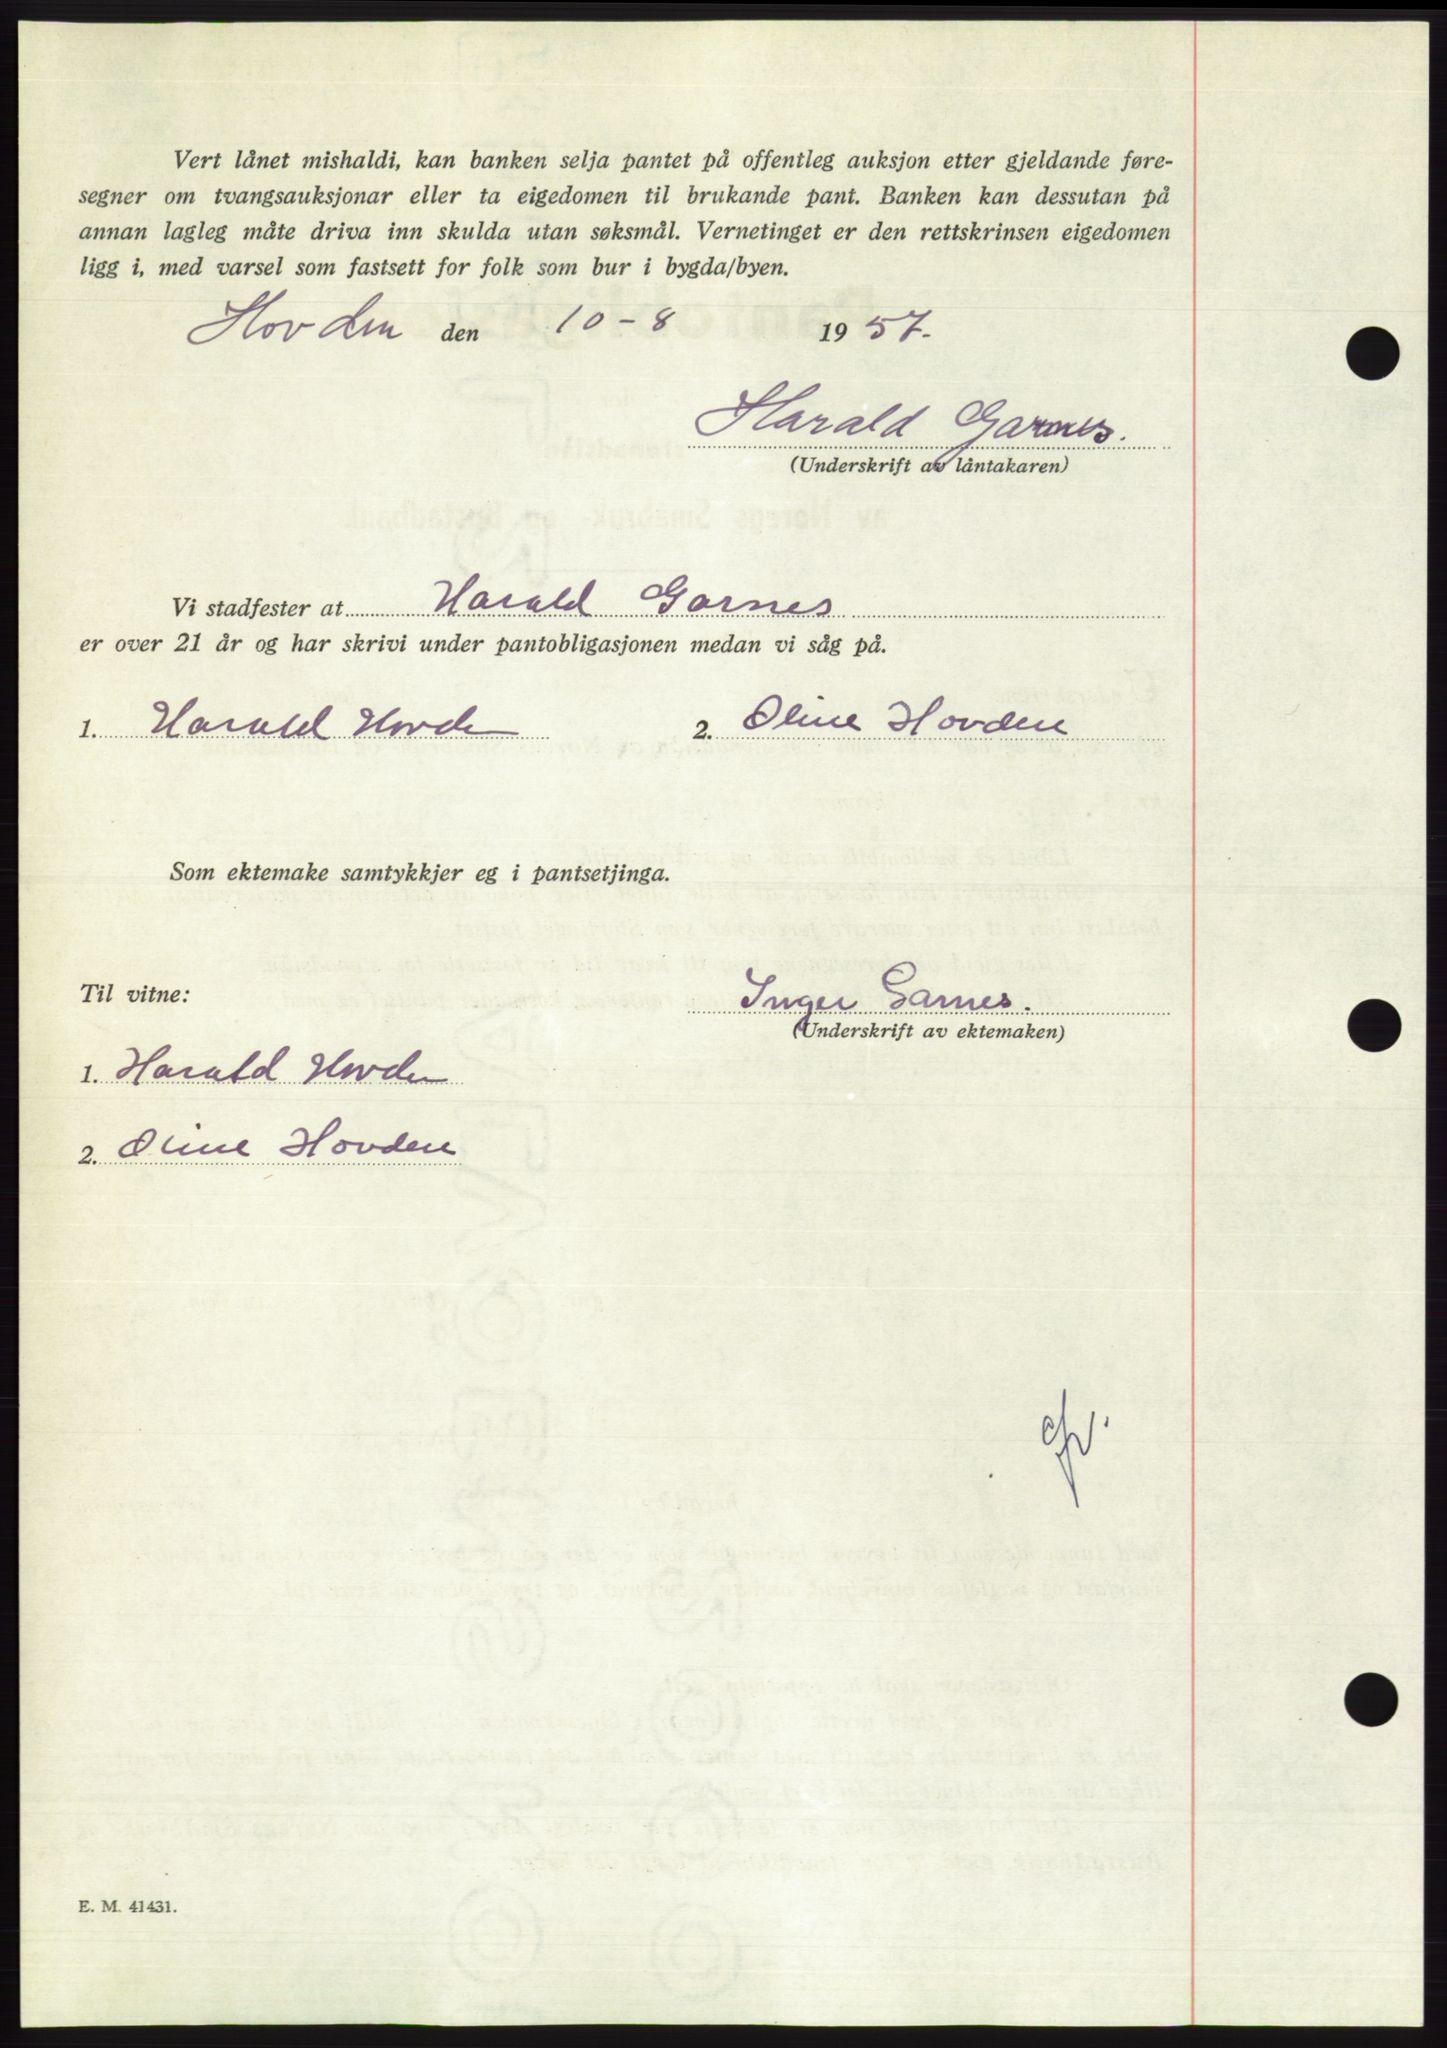 Vert lånet mishaldi, kan banken selja pantet på offentleg auksjon etter gjeldande føre-
segner om tvangsauksjonar eller ta eigedomen til brukande pant. Banken kan dessutan på
annan lagleg måte driva inn skulda utan søksmål. Vernetinget er den rettskrinsen eigedomen
ligg i, med varsel som fastsett for folk som bur i bygda/byen.
Hovden den 10-8 1957.
Harald Garnes.
(Underskrift av låntakaren)
Vi stadfester at Harald Garnes
er over 21 år og har skrivi under pantobligasjonen medan vi såg på.
1. Harald Hovden 2. Oline Hovden
Som ektemake samtykkjer eg i pantsetjinga.
Til vitne: Inger Garnes.
(Underskrift av ektemaken)
1. Harald Hovden
2. Oline Hovden
E. M. 41431.